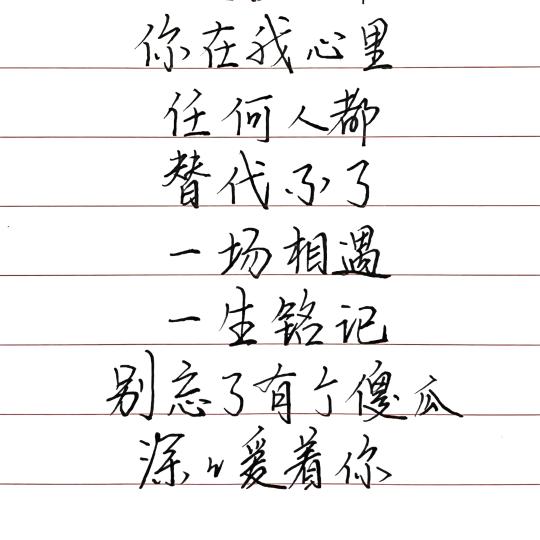 你在我心里
任何人都
替代不了
一场相遇
一生铭记
别忘了有个傻瓜
深深爱着你